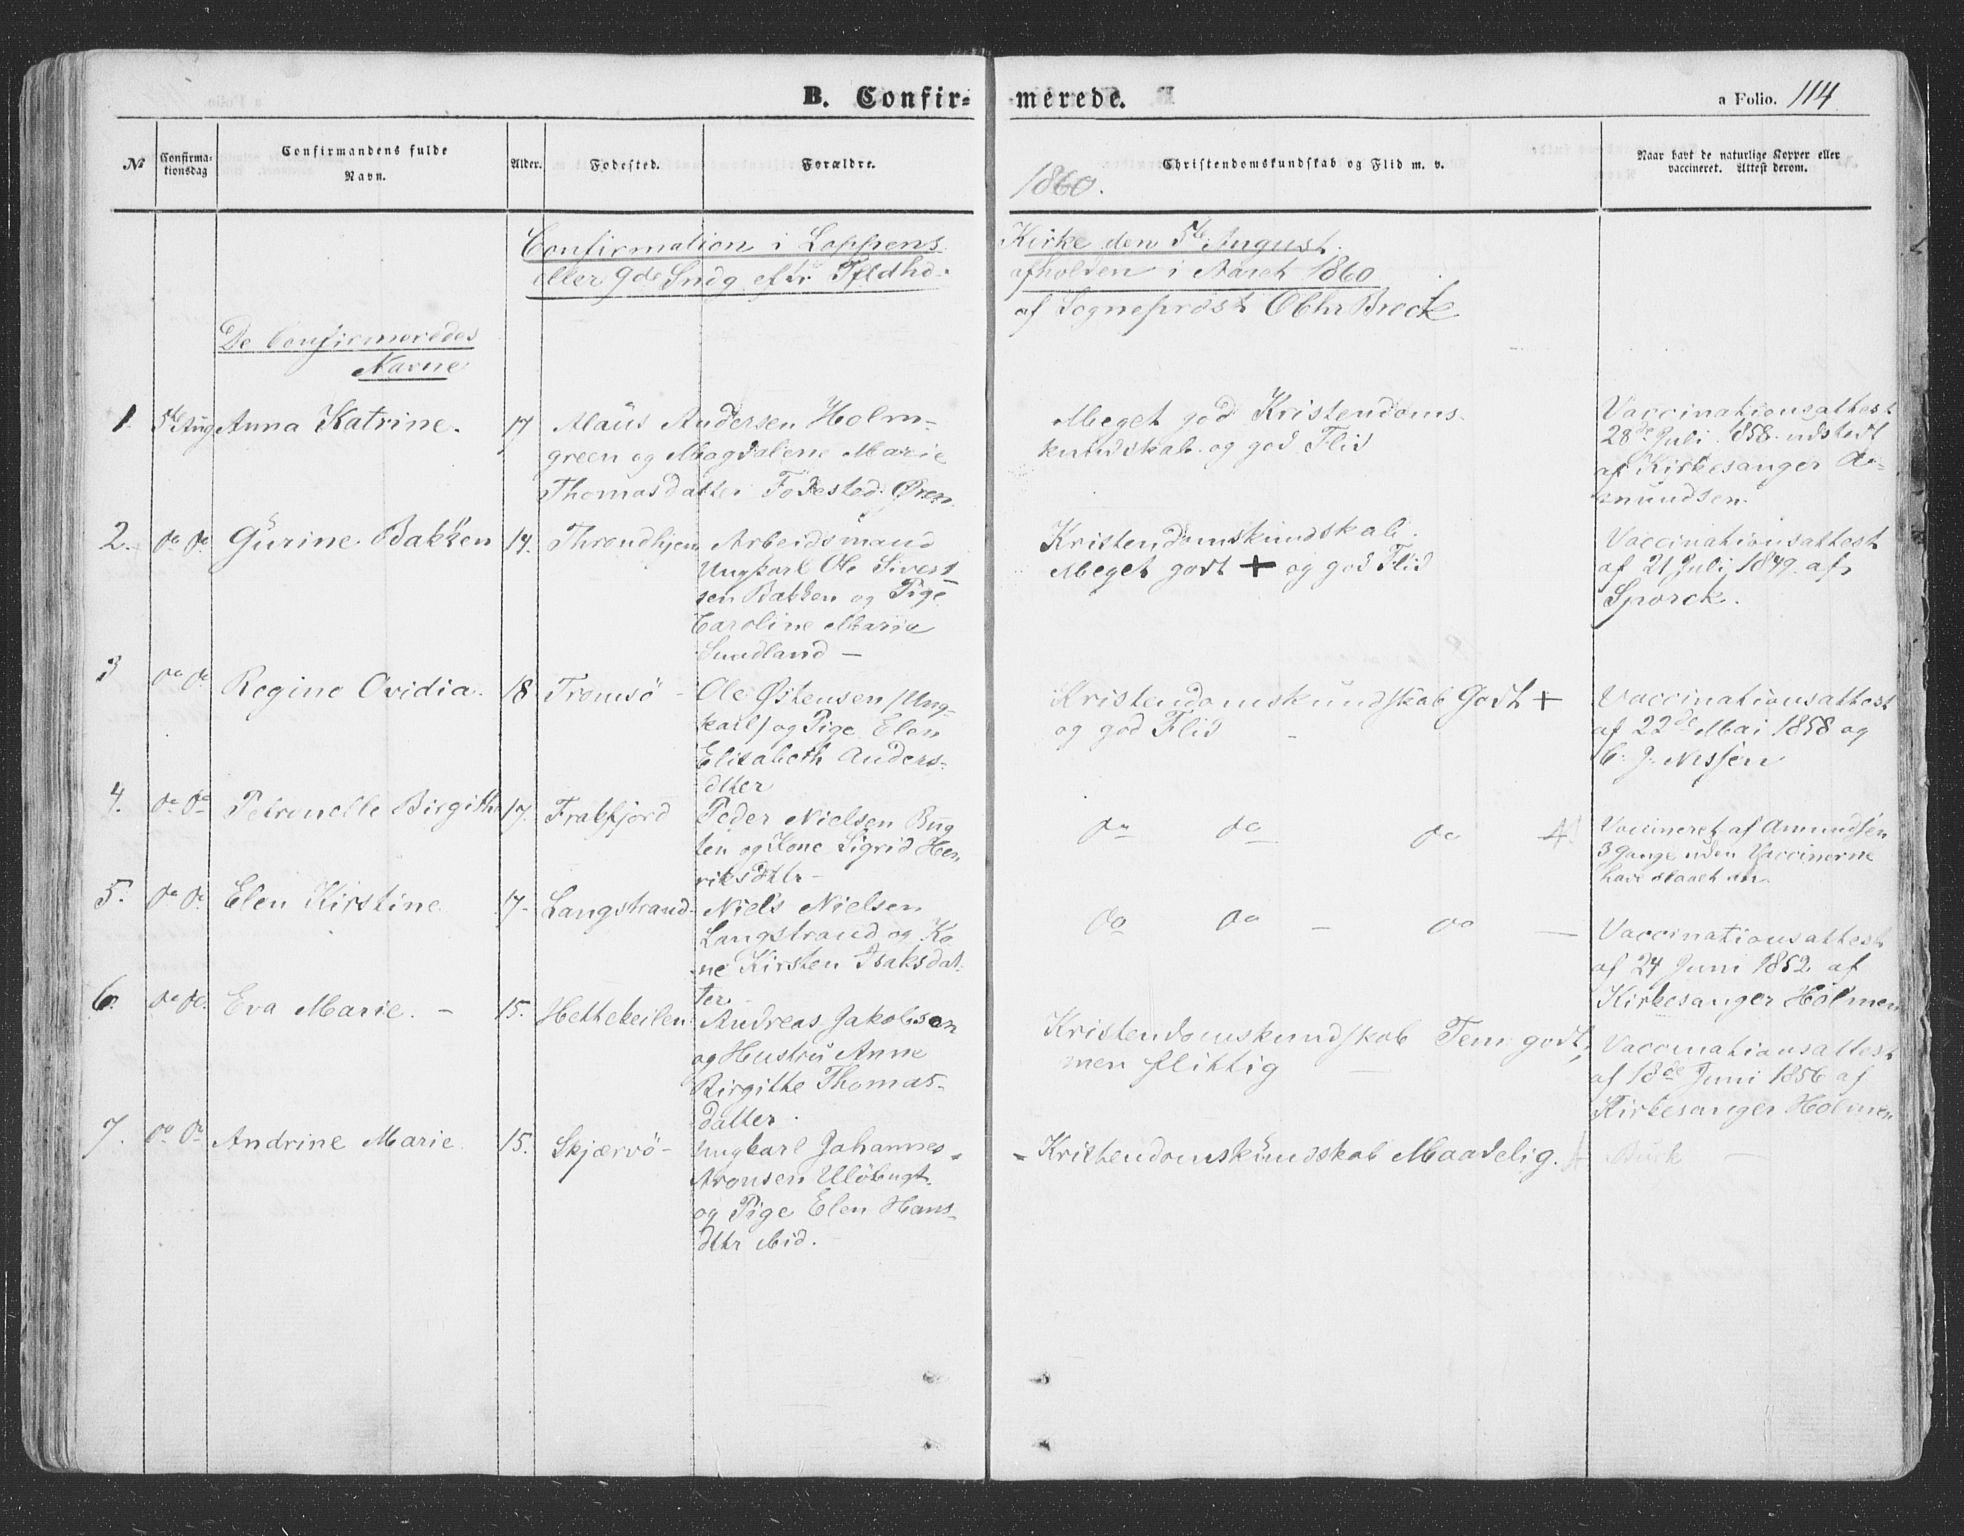 B. Confir-
merede.
a Folio. 114
№
Confirma-
tionsdag
Confirmandens fulde
Navn.
Alder.
Fødested.
Forældre.
1860.
Christendomskundskab og Flid m. v.
Naar havt de naturlige Kopper eller
vaccineret. Attest derom.
Confirmation i Loppens
Kirke den 5te August
eller 9de Sndg eftr
afholden i Aaret 1860
af Sogneprest
De Confirmeredes
Navne
1. 5te Aug Anna Katrine. 17
Andersen Holm-
green og Magdalene Marie
Thomasdatter Födested: Øren
Meget god Kristendoms-
kundskab og god Flid
Vaccinationsattest
28de Juli 1858 udstedt
af Kirkesanger A-
mundsen
2. do do Gurine Bakken 14. Throndhjem
Arbeidsmand
Ungkarl Ole Sivert
sen Bakken og Pige
Caroline Marie
Sundland —
Kristendomskundskab
Meget godt + og god Flid
Vaccinationsattest
af 21 Juli 1849 af
Sporck.
3 do do Regine Ovidia 18 Tromsö -
Ole Østensen /Ung-
karl/ og Pige Elen
Elisabeth Anders-
dtter
Kristendomskundskab Godt +
og god Flid -
Vaccinationsattest
af 22de Mai 1858 og
C. J. Nissen
4. do do Petronelle Birgitte 17. Frakfjord
Peder Nielsen Bug
ten og Kone Sigrid Hen
riksdttr -
do do do
Vaccineret af Amundsen
3 gange uden Vaccinerne
have slaaet an
5. do do Elen Kirstine 17. Langstrand
Niels Nielsen
Langstrand og Ko
ne Kirsten Isaksdat
ter
do do - do —
Vaccinationsattest
af 24 Juni 1852 af
Kirkesanger Holmen
6. do do Eva Marie. - 15. Hettekeilen
Andreas Jakobsen
og Hustru Anne
Birgitte Thomas-
datter.
Kristendomskundskab Tem: godt,
men flittig —
Vaccinationsattest
af 18de Juni 1856 af
Kirkesanger Holmen
7. do do Andrine Marie 15. Skjærvö -
Ungkarl Johannes
Aronsen Ulöbugt
og Pige Elen Hans-
dttr ibid.
- Kristendomskundskab Maadelig.